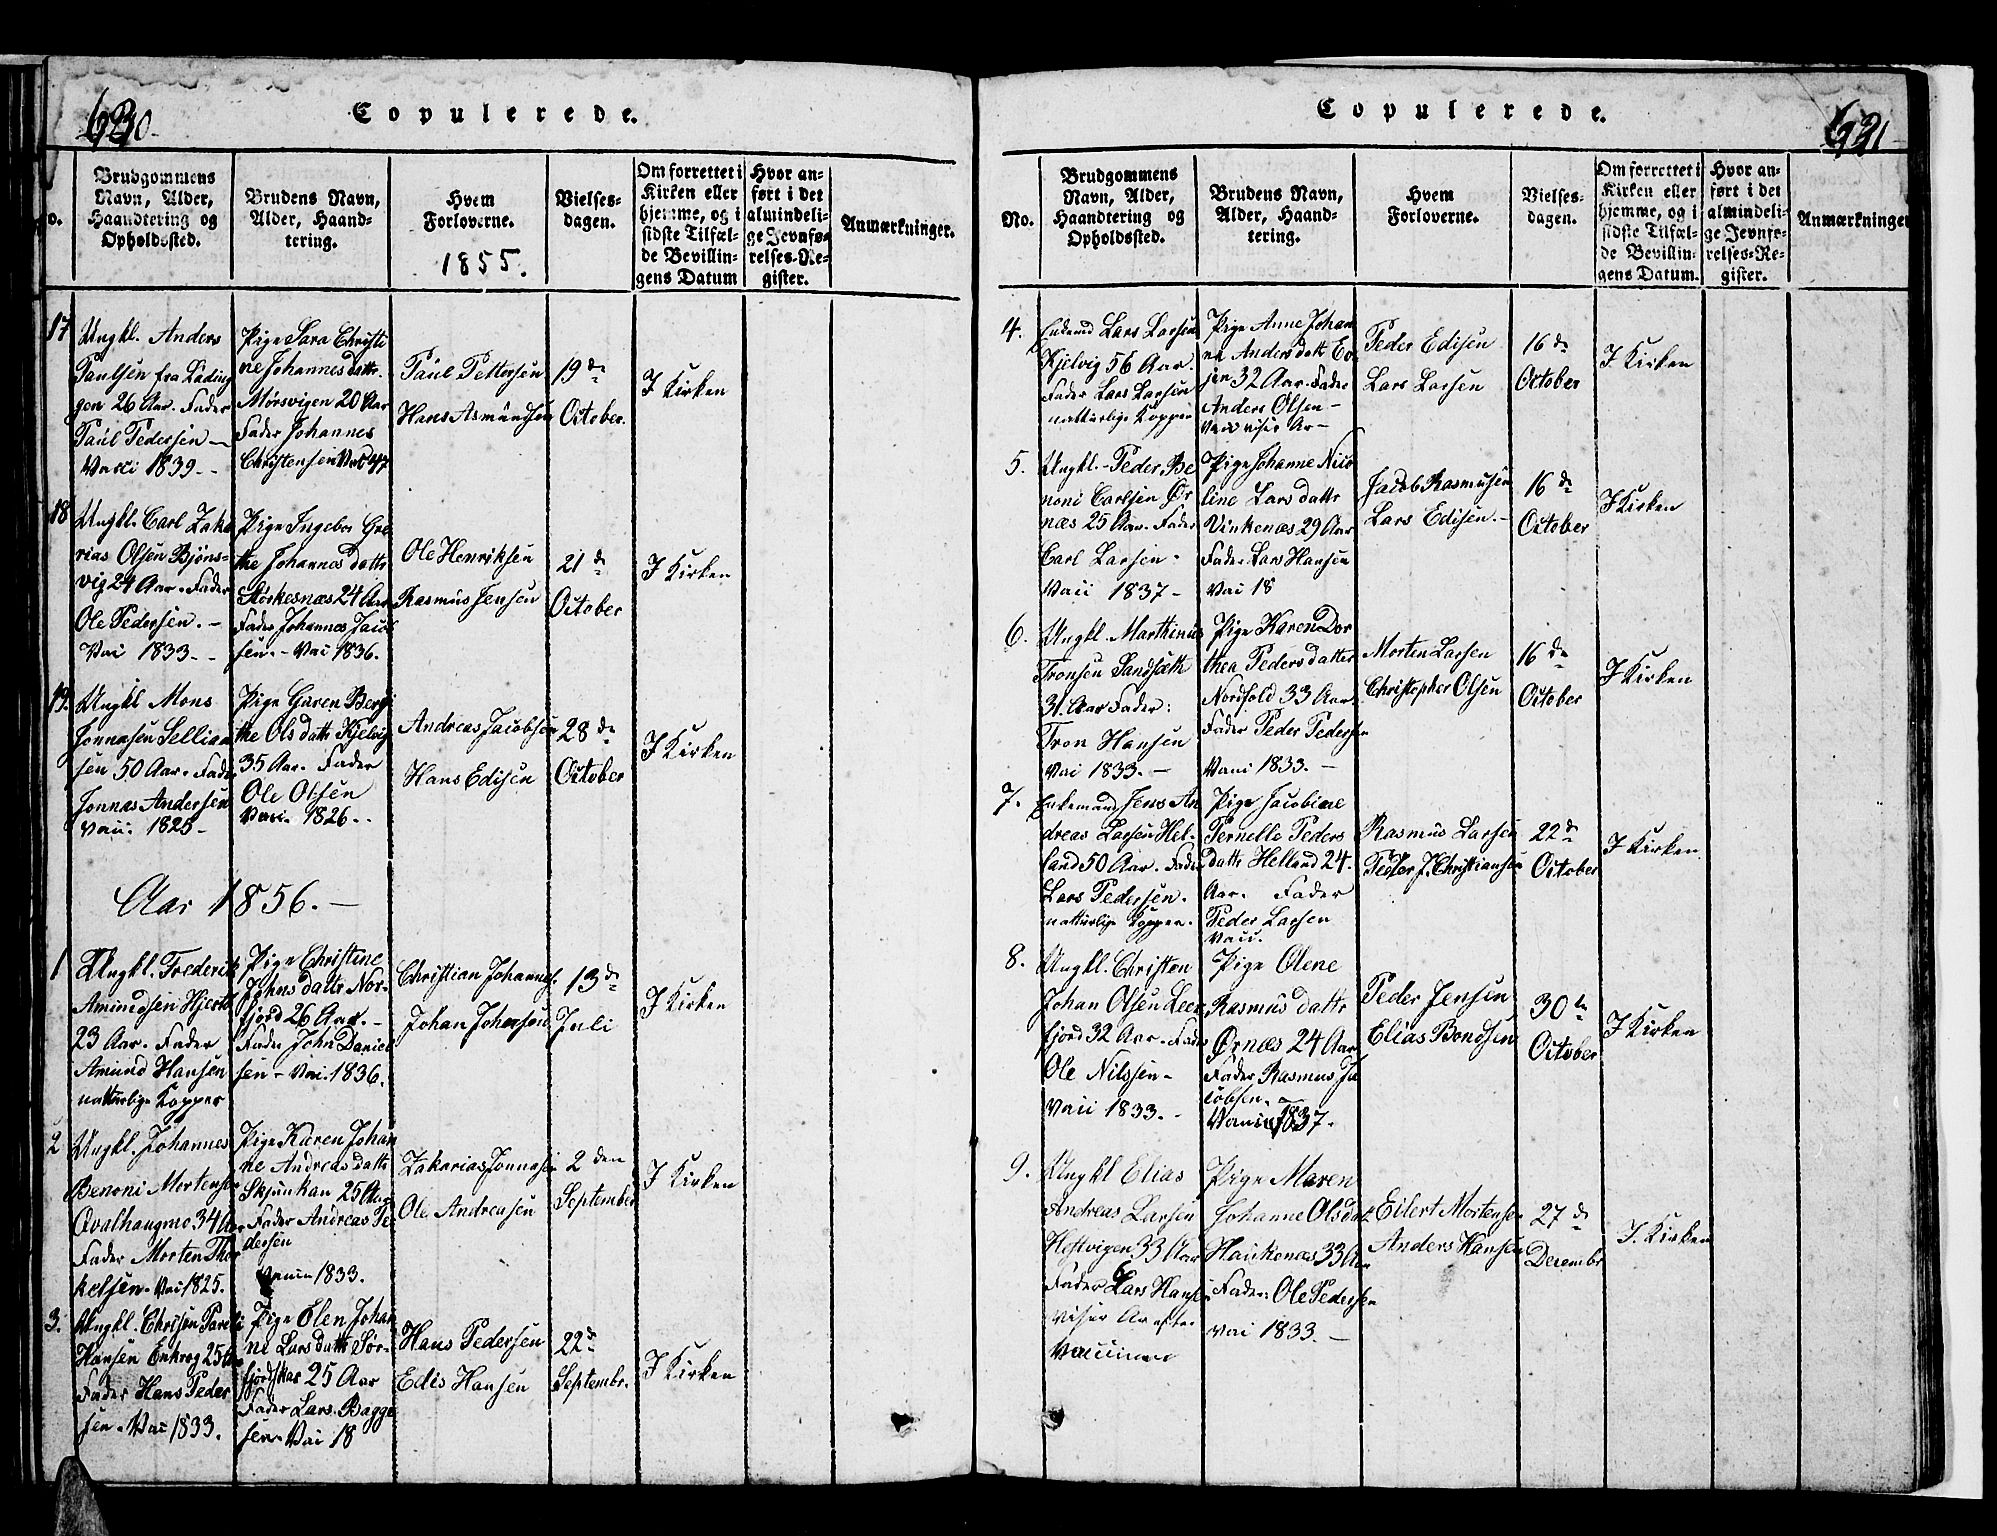 630
Copulerede.
o.
Brudgommens
Navn, Alder,
Haandtering og
Opholdssted.
Brudens Navn,
Alder, Haand-
tering.
Hvem
Forloverne.
1855.
Vielses-
dagen.
Om forrettet i
Kirken eller
hjemme, og i
sidste Tilfæl-
de Bevillin-
gens Datum
Hvor an-
ført i det
almindeli-
ge Jevnfø-
relses-Re-
gister.
Anmærkninger.
17
Ungkl. Anders
Paulsen fra Loding
gen 26 Aar. Fader
Paul Pedersen —
Vacci 1839. -
Pige Sara Christi
ne Johannesdattr.
Mørsvigen 20 Aar
Fader Johannes
Christensen Vac 47
Paul Pettersen
Hans Asmundsen
19de
October.
I Kirken
18
Ungkl. Carl Zaka
rias Olsen Bjøns-
vig 24 Aar. Fader
Ole Pedersen. -
Vai 1833. -
Pige Ingebor Gre
the Johannesdattr
Størkesnæs 24 Aar
Fader Johannes Jacob
sen. - Vai 1836.
Ole Henriksen
Rasmus Jensen
21de
October
I Kirken
19.
Ungkl Mons
Jonnasen Sellian
sen 50 Aar. Fader
Jonnas Andersen
Vacci. 1825 -
Pige Guren Berg
the Olsdattr Kjelvig
35 Aar. Fader
Ole Olsen
Vacci. 1826. -
Andreas Jacobsen
Hans Edisen
28de
October
I Kirken
Aar 1856. —
1
Ungkl. Frederik
Amundsen Hjertl
23 Aar. Fader
Amund Hansen
naturlige Kopper
Pige Christine
Johnsdattr Nor-
fjord 26 Aar. -
Fader John Daniel
sen - Vai. 1836.
Christian Johannes.
Johan Johnsen
13de
Juli
I Kirken
2
Ungkl. Johannes
Benoni Mortensen
Qvalhaugmo 34 Aar
Fader Morten Thor
kelsen. Vai 1825.
Pige Karen Johan
ne Andreasdattr
Skjunkan 25 Aar
Fader Andreas Pe
dersen
1833.
Zakarias Jonnasen
Ole Andreasen
2den
September
I Kirken
3.
Hansen Enkrog 25 Aar
Fader Hans Peder
sen. Vai 1833.
Pige Elen Johan
ne Larsdattr Sør-
fjordskar 25 Aar
Fader Lars Bagge
sen. Vai 18
Hans Pedersen
Edis Hansen
22de
Septembr.
I Kirken
631
Copulerede.
No.
Brudgommens
Navn, Alder,
Haandtering og
Opholdssted.
Brudens Navn,
Alder, Haand-
tering.
Hvem
Forloverne.
Vielses-
dagen.
Om forrettet i
Kirken eller
hjemme, og i
sidste Tilfæl-
de Bevillin-
gens Datum.
Hvor an-
ført i det
almindeli-
ge Jevnfø-
relses-Re-
gister.
Anmærkninger
4.
Enkemd Lars Larsen
Kjelvig 56 Aar.
Fader Lars Larsen
naturlige Kopper
Pige Anne Johan
ne Andersdattr Eo
jen 32 Aar. Fader
Anders Olsen -
Peder Edisen
Lars Larsen
16de
October
I Kirken
5.
Ungkl. - Peder Be
noni Carlsen Ør
næs 25 Aar. Fader
Carl Larsen.
Vacci 1837 -
Pige Johanne Nico
line Larsdattr
Vinkenæs 29 Aar
Fader Lars Hansen
Vai 18
Jacob Rasmusen
Lars Edisen. -
16de
October
I Kirken
6.
Ungkl. Marthinus
Tronsen Sandsæth
31. Aar Fader:
Tron Hansen
Vai 1833. —
Pige Karen Dor
thea Pedersdatter
Nordfold 33 Aar.
Fader Peder Pedersen
1833. —
Morten Larsen
Christopher Olsen
16de
October
I Kirken
7.
Enkemand Jens An
dreas Larsen Hel-
land 50 Aar. Fader
Lars Pedersen.
naturlige Kopper.
Pige Jacobine
Pernelle Peders
dattr Helland 24.
Aar. Fader
Peder Larsen
Vacci.
Rasmus Larsen
Peder J. Christiansen
22de
October
I Kirken
8.
Ungkl. Christen
Johan Olsen Leer
fjord 32 Aar. Fader
Ole Nilssen -
Vacci 1833. -
Pige Olene
Rasmusdattr
Ørnæs 24 Aar
Fader Rasmus Ja
cobsen. -
1837.
Peder Jensen
Elias Bondsen
30te
October
I Kirken
9.
Ungkl Elias
Andreas Larsen
Hestvigen 33 Aar
Fader Lars Hansen
viser Ar efter
Vaccinen
Pige Maren
Johanne Olsdatt
Haukenæs 33 Aar
Fader: Ole Pedersen
vai 1833. —
Eilert Mortensen
Anders Hansen
27de
Decembr
I. Kirken